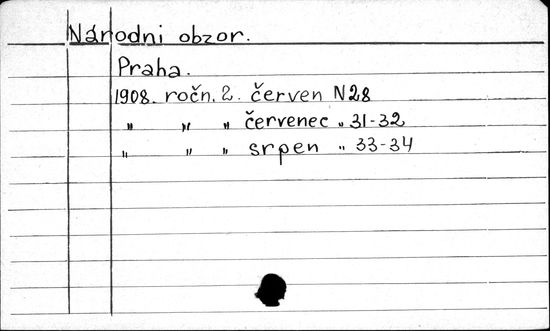 Národni obzor.
Praha.
1908. ročn. 2. červen N28
" " " červenec " 31-32
" " " srpen " 33-34